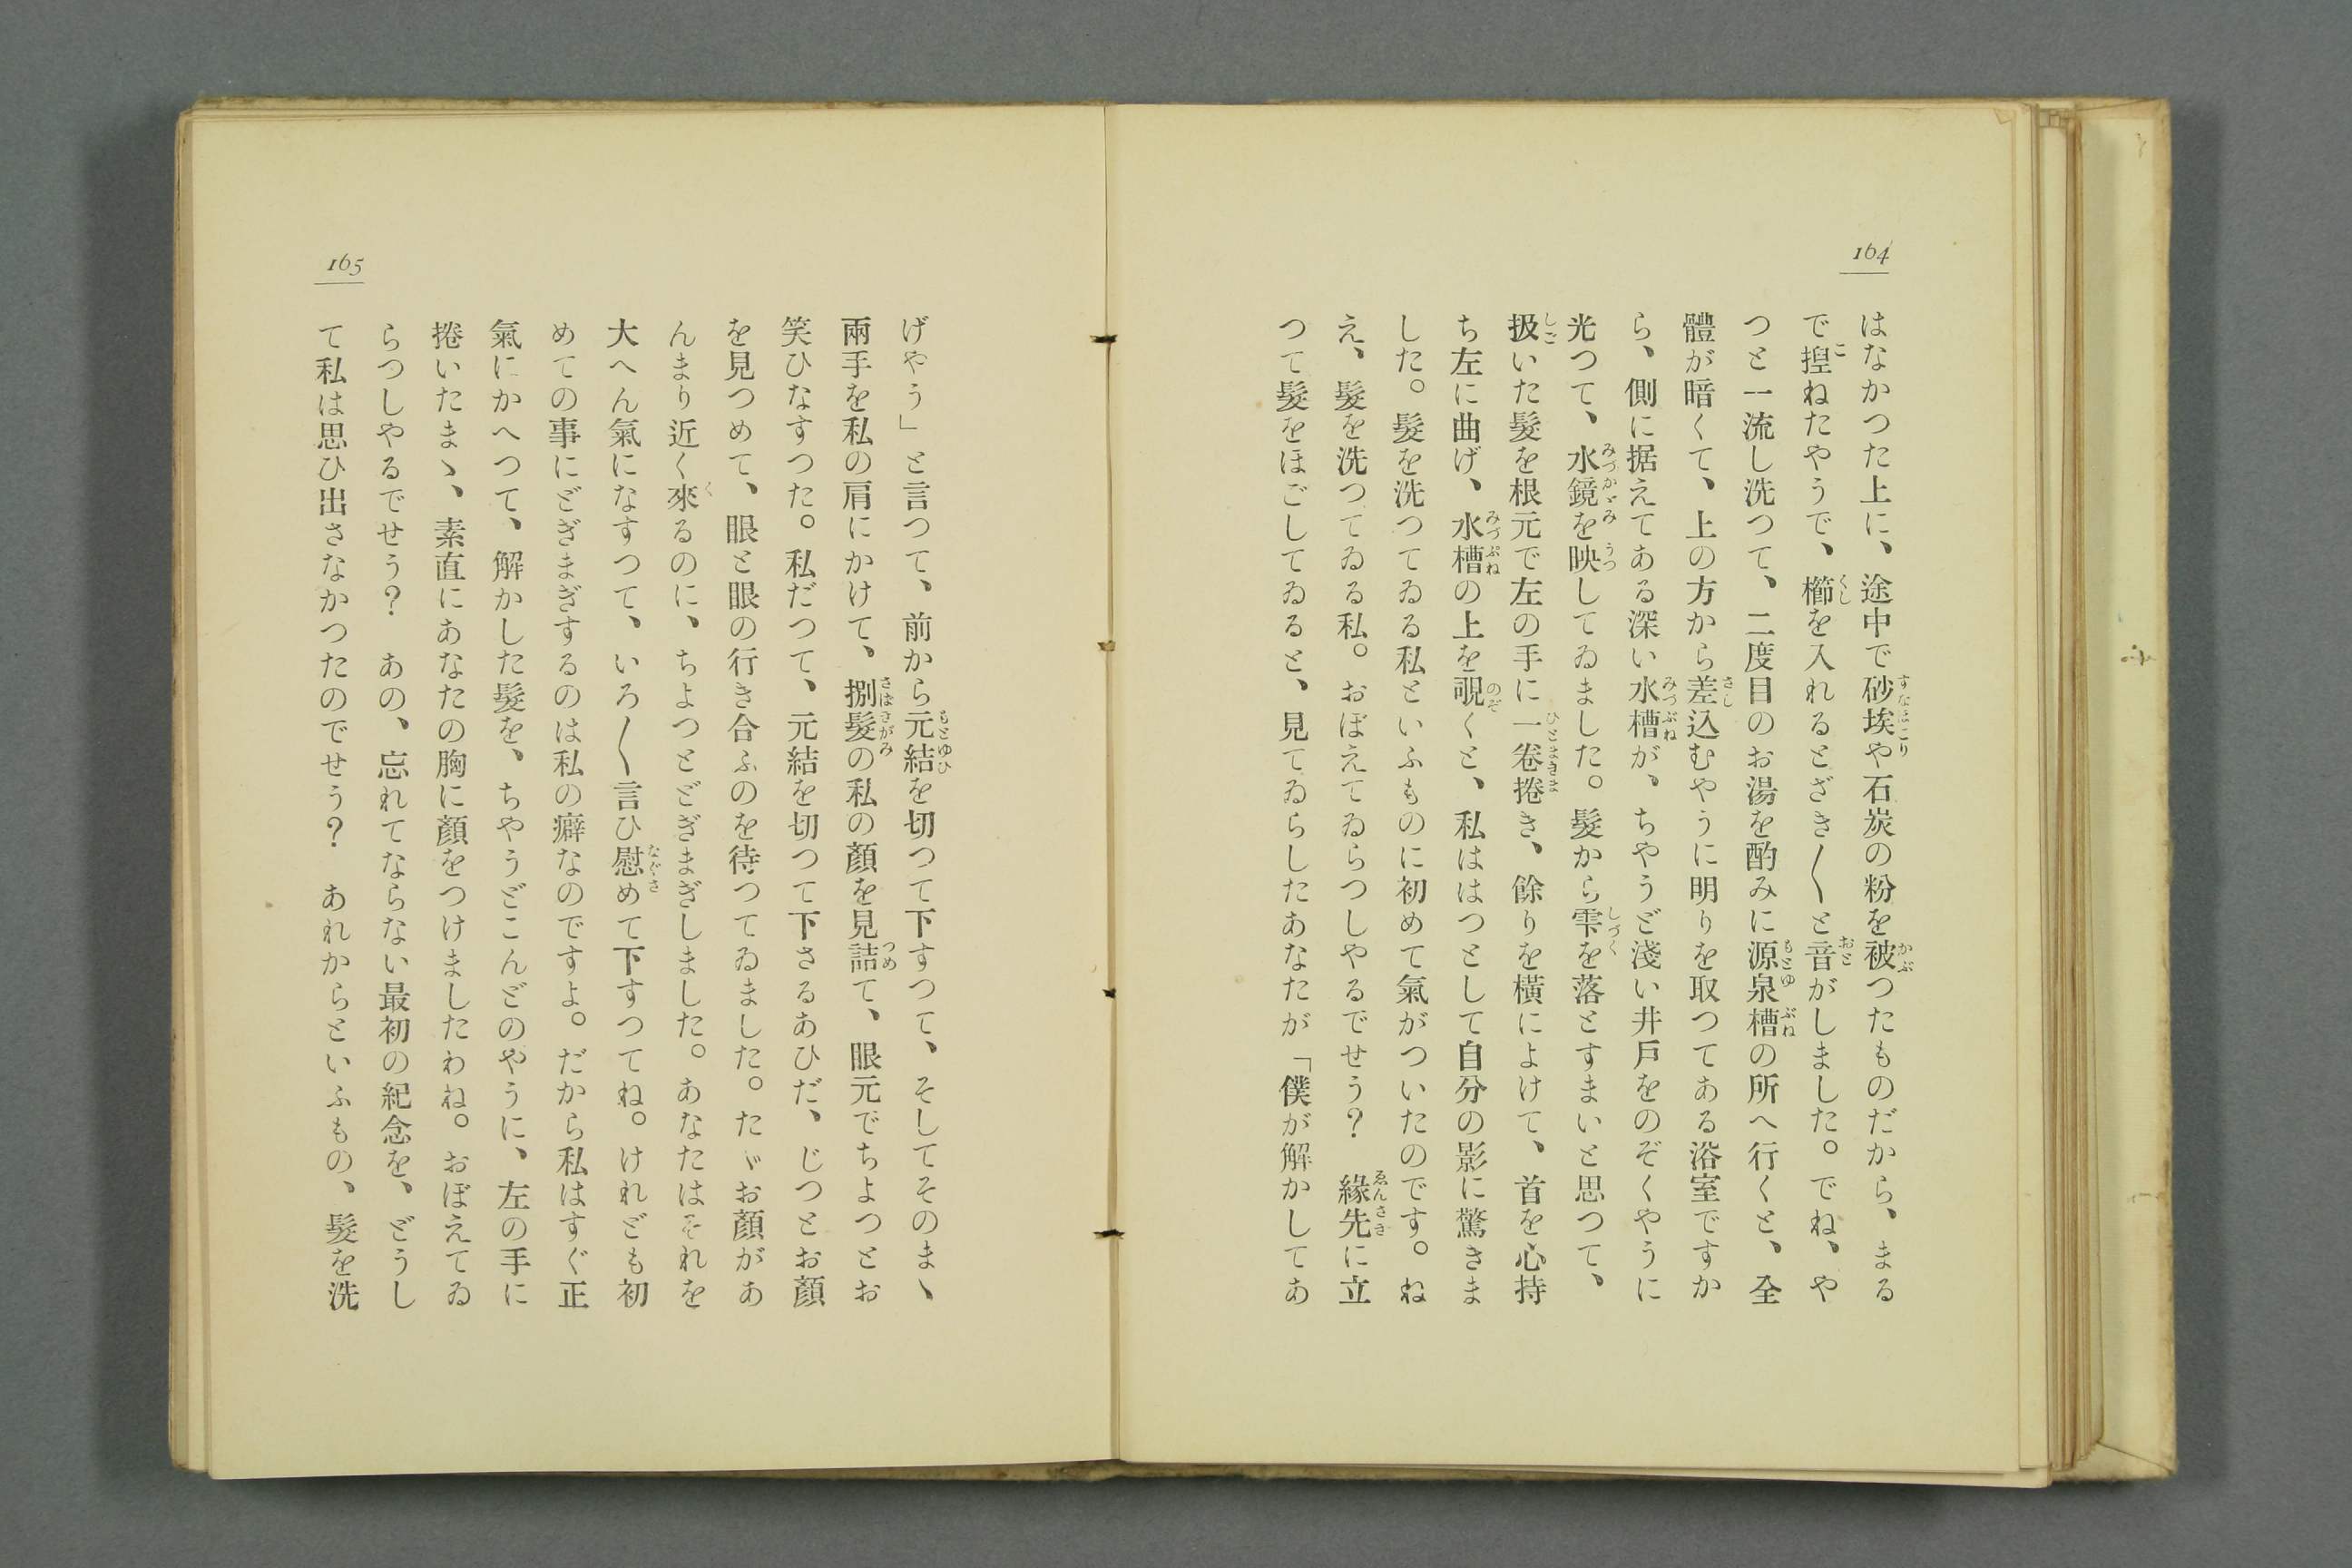 164
はなかつた上に、途中で砂埃や石炭の粉を被つたものだから、まる
で揑ねたやうで、櫛を入れるとざき〳〵と音がしました。でね、や
つと一流し洗つて、二度目のお湯を酌みに源泉槽の所へ行くと、全
體が暗くて、上の方から差込むやうに明りを取つてある浴室ですか
ら、側に据えてある深い水槽が、ちやうど淺い井戸をのぞくやうに
光つて、水鏡を映してゐました。髮から雫を落とすまいと思つて、
扱いた髮を根元で左の手に一卷捲き、餘りを横によけて、首を心持
ち左に曲げ、水槽の上を覗くと、私ははつとして自分の影に驚きま
した。髮を洗つてゐる私といふものに初めて氣がついたのです。ね
え、髮を洗つてゐる私。おぼえてゐらつしやるでせう？　緣先に立
つて髮をほごしてゐると、見てゐらしたあなたが「僕が解かしてあ
165
げやう」と言つて、前から元結を切つて下すつて、そしてそのまゝ
兩手を私の肩にかけて、捌髮の私の顏を見詰て、眼元でちよつとお
笑ひなすつた。私だつて、元結を切つて下さるあひだ、じつとお顏
を見つめて、眼と眼の行き合ふのを待つてゐました。たゞお顏があ
んまり近く來るのに、ちよつとどぎまぎしました。あなたはそれを
大へん氣になすつて、いろ〳〵言ひ慰めて下すつてね。けれども初
めての事にどぎまぎするのは私の癖なのですよ。だから私はすぐ正
氣にかへつて、解かした髮を、ちやうどこんどのやうに、左の手に
捲いたまゝ、素直にあなたの胸に顏をつけましたわね。おぼえてゐ
らつしやるでせう？　あの、忘れてならない最初の紀念を、どうし
て私は思ひ出さなかつたのでせう？　あれからといふもの、髮を洗